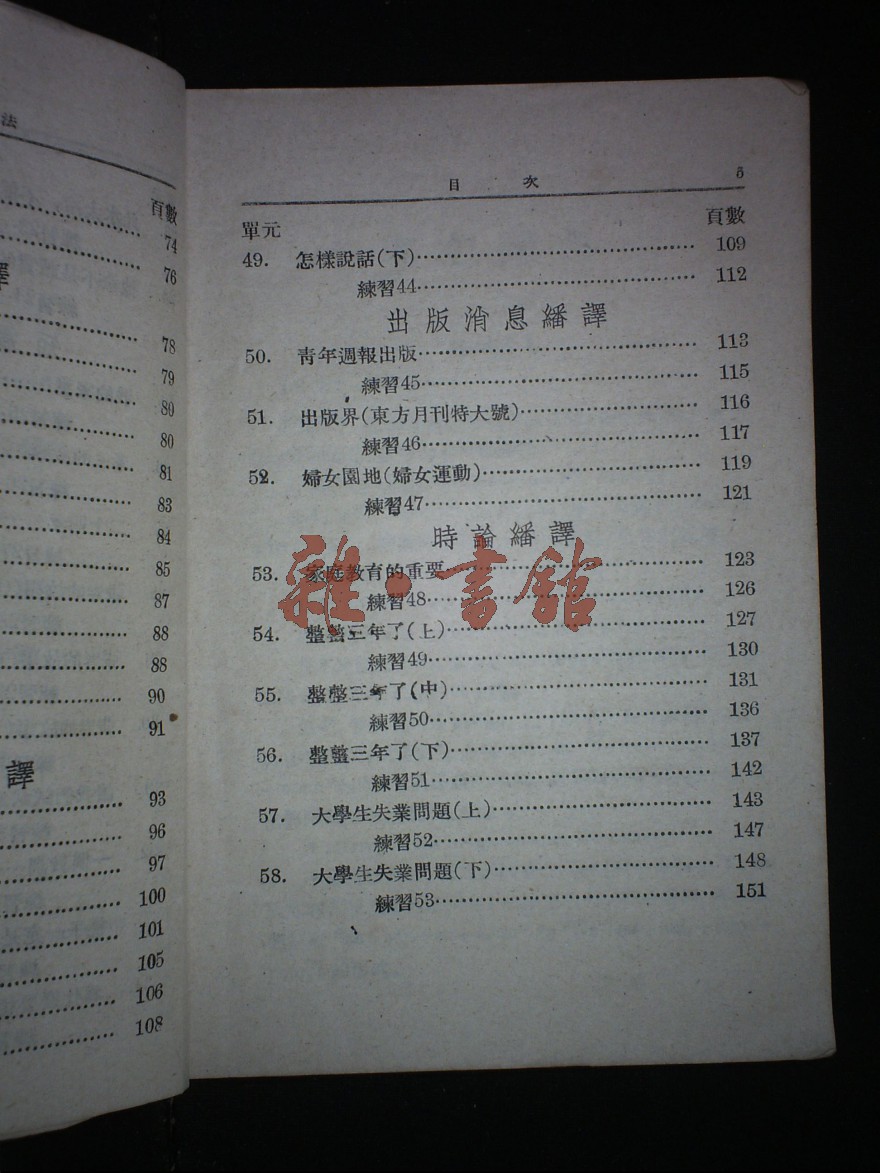 法
頁數
74
76
譯
78
79
80
80
81
83
84
85
87
88
88
90
91
譯
93
96
97
100
101
105
106
108
目 次 5
單元 頁數
49. 怎樣說話(下)……………………………… 109
練習44……………………………… 112
出版消息繙譯
50. 青年週報出版……………………………… 113
練習45……………………………… 115
51. 出版界(東方月刊特大號)……………………… 116
練習46……………………………… 117
52. 婦女園地(婦女運動)……………………… 119
練習47……………………………… 121
時論繙譯
53. 家庭教育的重要……………………………… 123
練習48……………………………… 126
54. 整整三年了(上)……………………………… 127
練習49……………………………… 130
55. 整整三年了(中)……………………………… 131
練習50……………………………… 136
56. 整整三年了(下)……………………………… 137
練習51……………………………… 142
57. 大學生失業問題(上)……………………… 143
練習52……………………………… 147
58. 大學生失業問題(下)……………………… 148
練習53……………………………… 151
雜·書館